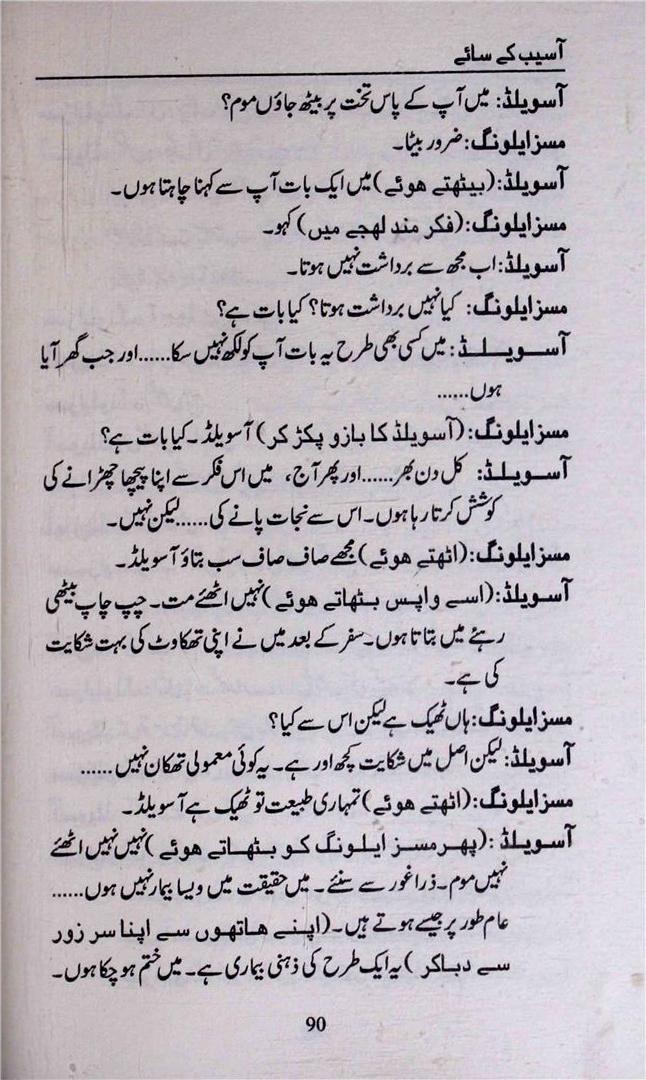 آسیب کے سائے
آسویلڈ: میں آپ کے پاس تخت پر بیٹھ جاؤں موم؟
مسز ایلونگ: ضرور بیٹا۔
آسویلڈ: (بیٹھتے ہوئے) میں ایک بات آپ سے کہنا چاہتا ہوں۔
مسز ایلونگ: (فکر مند لہجے میں) کہو۔
آسویلڈ: اب مجھ سے برداشت نہیں ہوتا۔
مسز ایلونگ: کیا نہیں برداشت ہوتا؟ کیا بات ہے؟
آسویلڈ: میں کسی بھی طرح یہ بات آپ کو لکھ نہیں سکا...... اور جب گھر آیا
ہوں......
مسز ایلونگ: (آسویلڈ کا بازو پکڑ کر) آسویلڈ۔ کیا بات ہے؟
آسویلڈ: کل دن بھر...... اور پھر آج، میں اس فکر سے اپنا پیچھا چھڑانے کی
کوشش کرتا رہا ہوں۔ اس سے نجات پانے کی...... لیکن نہیں۔
مسز ایلونگ: (اٹھتے ہوئے) مجھے صاف صاف سب بتاؤ آسویلڈ۔
آسویلڈ: (اسے واپس بٹھاتے ہوئے) نہیں اٹھئے مت۔ چپ چاپ بیٹھی
رہئے میں بتاتا ہوں۔ سفر کے بعد میں نے اپنی تھکاوٹ کی بہت شکایت
کی ہے۔
مسز ایلونگ: ہاں ٹھیک ہے لیکن اس سے کیا؟
آسویلڈ: لیکن اصل میں شکایت کچھ اور ہے۔ یہ کوئی معمولی تھکان نہیں ......
مسز ایلونگ: (اٹھتے ہوئے) تمہاری طبیعت تو ٹھیک ہے آسویلڈ۔
آسویلڈ: (پھر مسز ایلونگ کو بٹھاتے ہوئے) نہیں نہیں اٹھئے
نہیں موم۔ ذرا غور سے سنئے۔ میں حقیقت میں ویسا بیمار نہیں ہوں......
عام طور پر جیسے ہوتے ہیں۔ (اپنے ہاتھوں سے اپنا سر زور
سے دبا کر) یہ ایک طرح کی ذہنی بیماری ہے۔ میں ختم ہو چکا ہوں۔
90